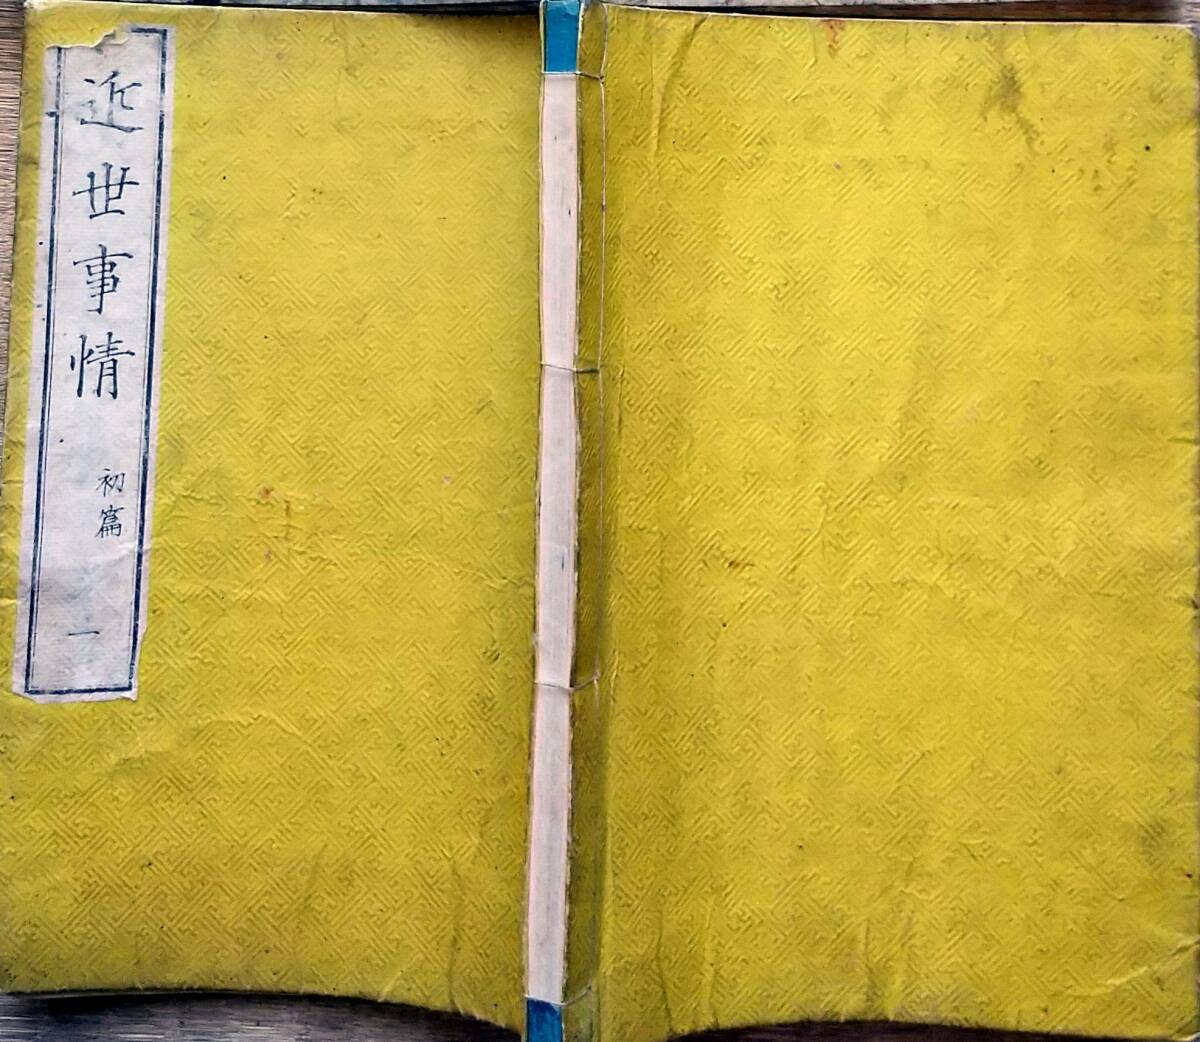 近世事情
初篇
一